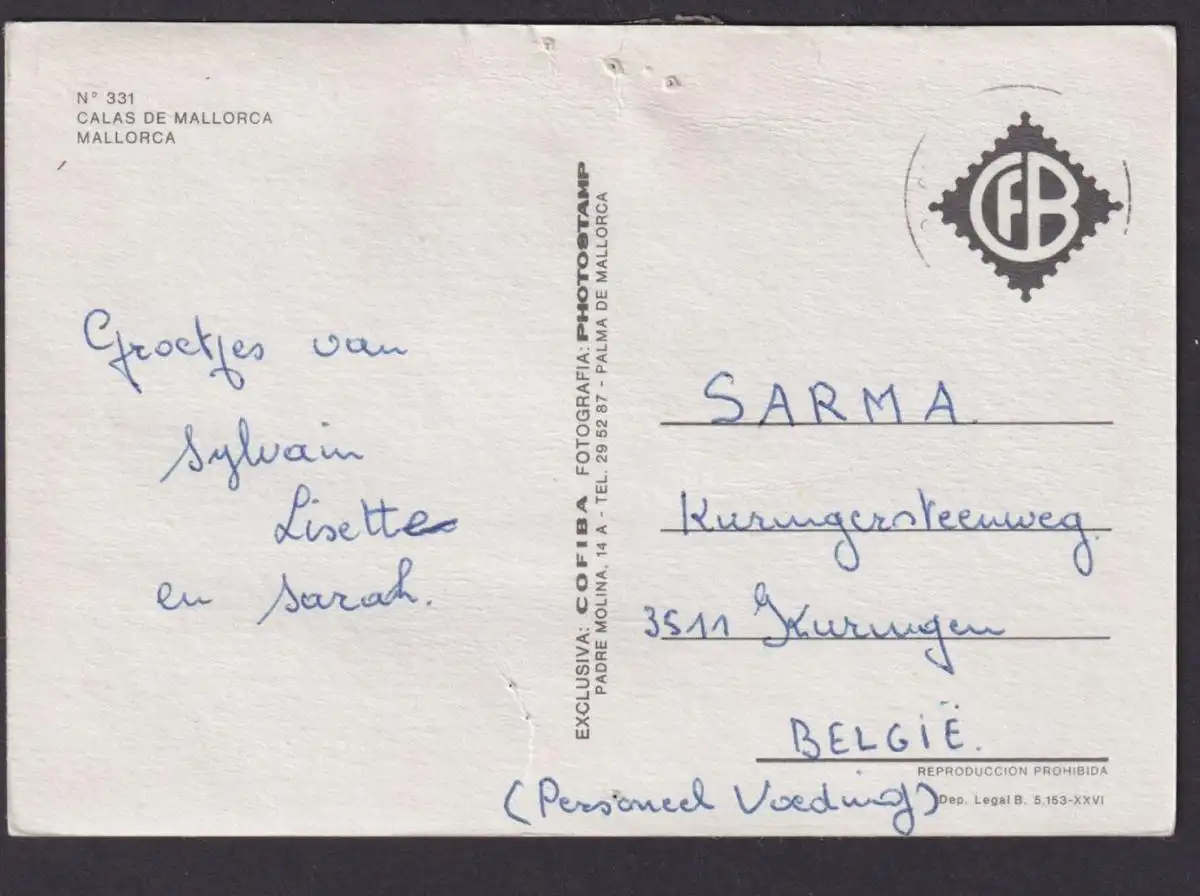 N° 331
CALAS DE MALLORCA
MALLORCA
CFB
Groetjes van
Sylvain
Lisette
en Sarah.
EXCLUSIVA: COFIBA FOTOGRAFIA: PHOTOSTAMP
PADRE MOLINA, 14 A - TEL. 29 52 87 - PALMA DE MALLORCA
SARMA.
Kuringersteenweg.
3511 Kuringen
BELGIË.
REPRODUCCION PROHIBIDA
(Personeel Voeding)
Dep. Legal B. 5.153-XXVI